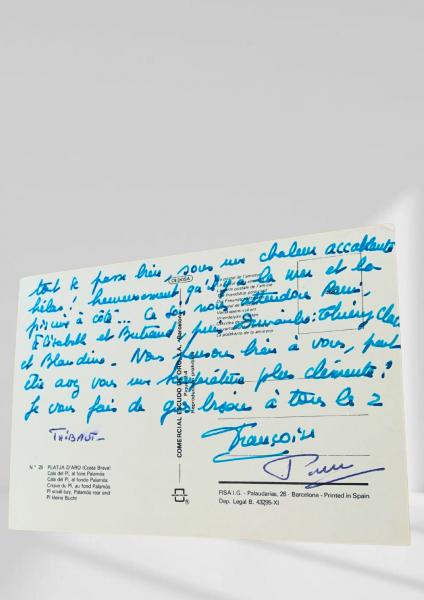 tout se passe bien, sous une chaleur accablante
hélas! heureusement qu'il y a la mer et la
piscine à côté... Ce soir nous attendons Rémi
Elisabeth et Bertrand, puis Dimanche Thierry
et Blandine. Nous pensons bien à vous, peut
être avez vous une température plus clémente!
Je vous fais de gros bisous à tous les 2
Françoise
THIBAUT
CEDOSA
COMERCIAL ESCUDO DE ORO, S.A. Barcelona
N.º 26 PLATJA D'ARO (Costa Brava)
Cala del Pi, al fons Palamós
Cala del Pi, al fondo Palamós
Crique du Pi, au fond Palamós
Pi small bay, Palamós rear end
Pi kleine Bucht
®
FISA I.G. - Palaudarias, 26 - Barcelona - Printed in Spain
Dep. Legal B. 43295-XI